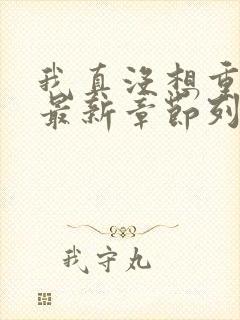 我真没想重
最新章节列
我守丸